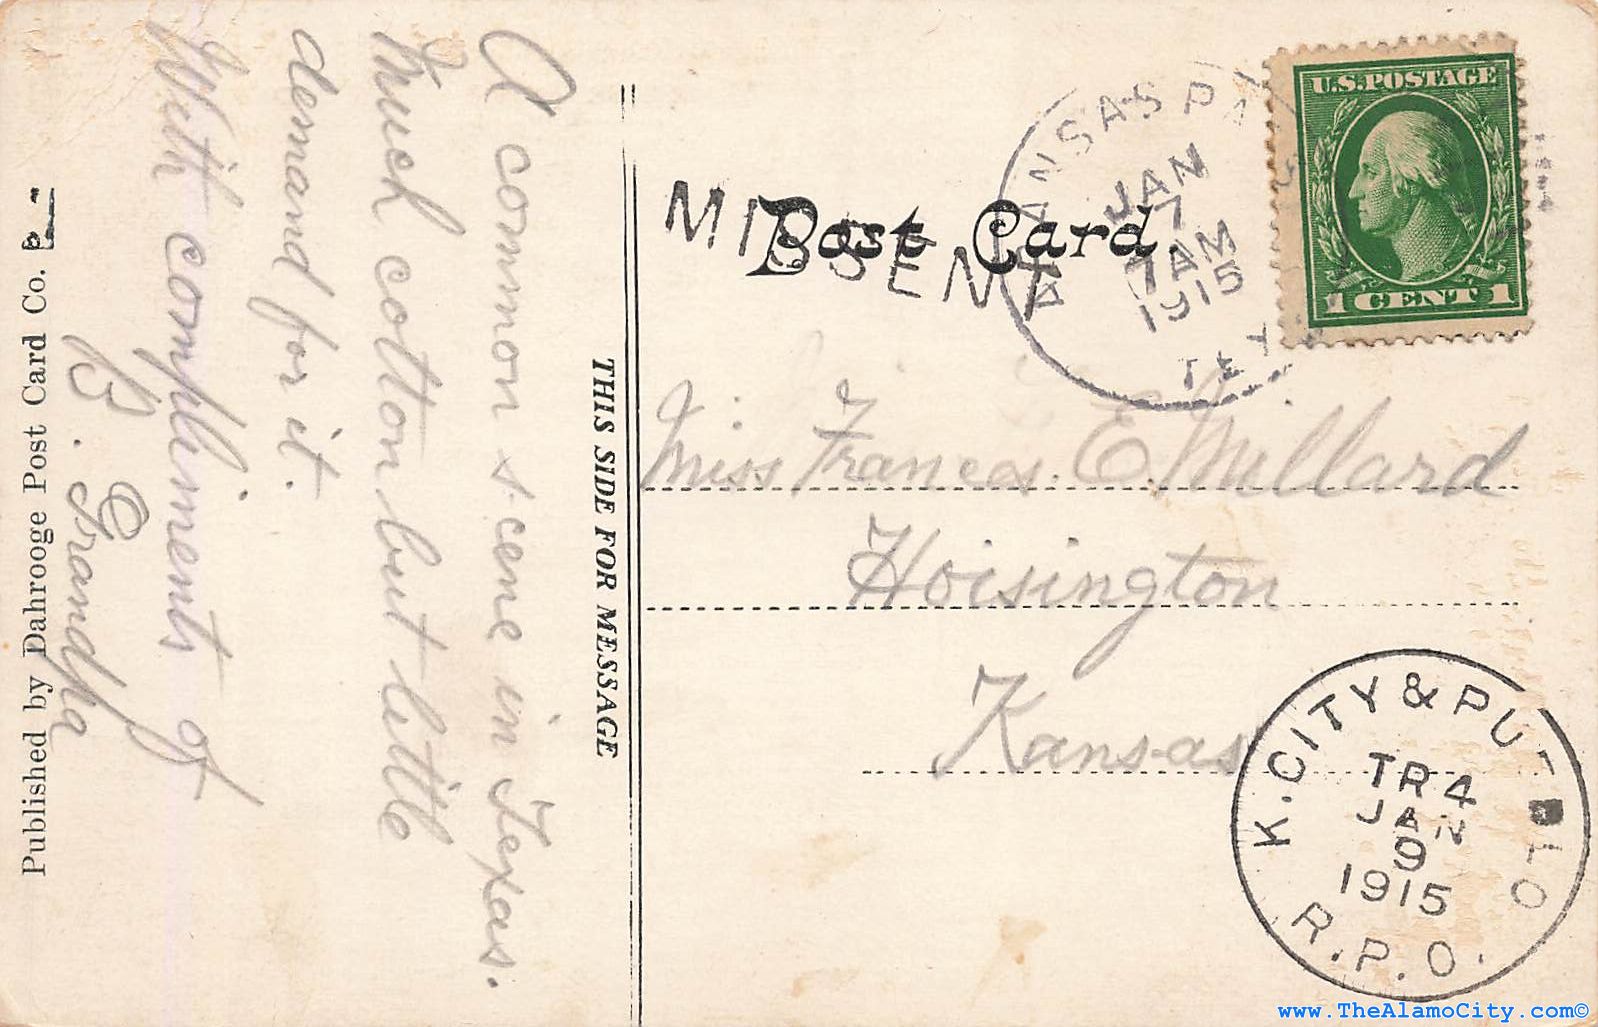 A common scene in Texas.
Much cotton but little
demand for it.
With compliments of
Grandpa
Published by Dahrooge Post Card Co.
THIS SIDE FOR MESSAGE
Post Card
MISSENT
ARANSAS PA
JAN
7
7 AM
1915
TEX
U.S. POSTAGE
1 CENT 1
Miss Frances E. Millard
Hoisington
Kansas
K. CITY & PUEBLO
TR 4
JAN
9
1915
R.P.O.
www.TheAlamoCity.com©